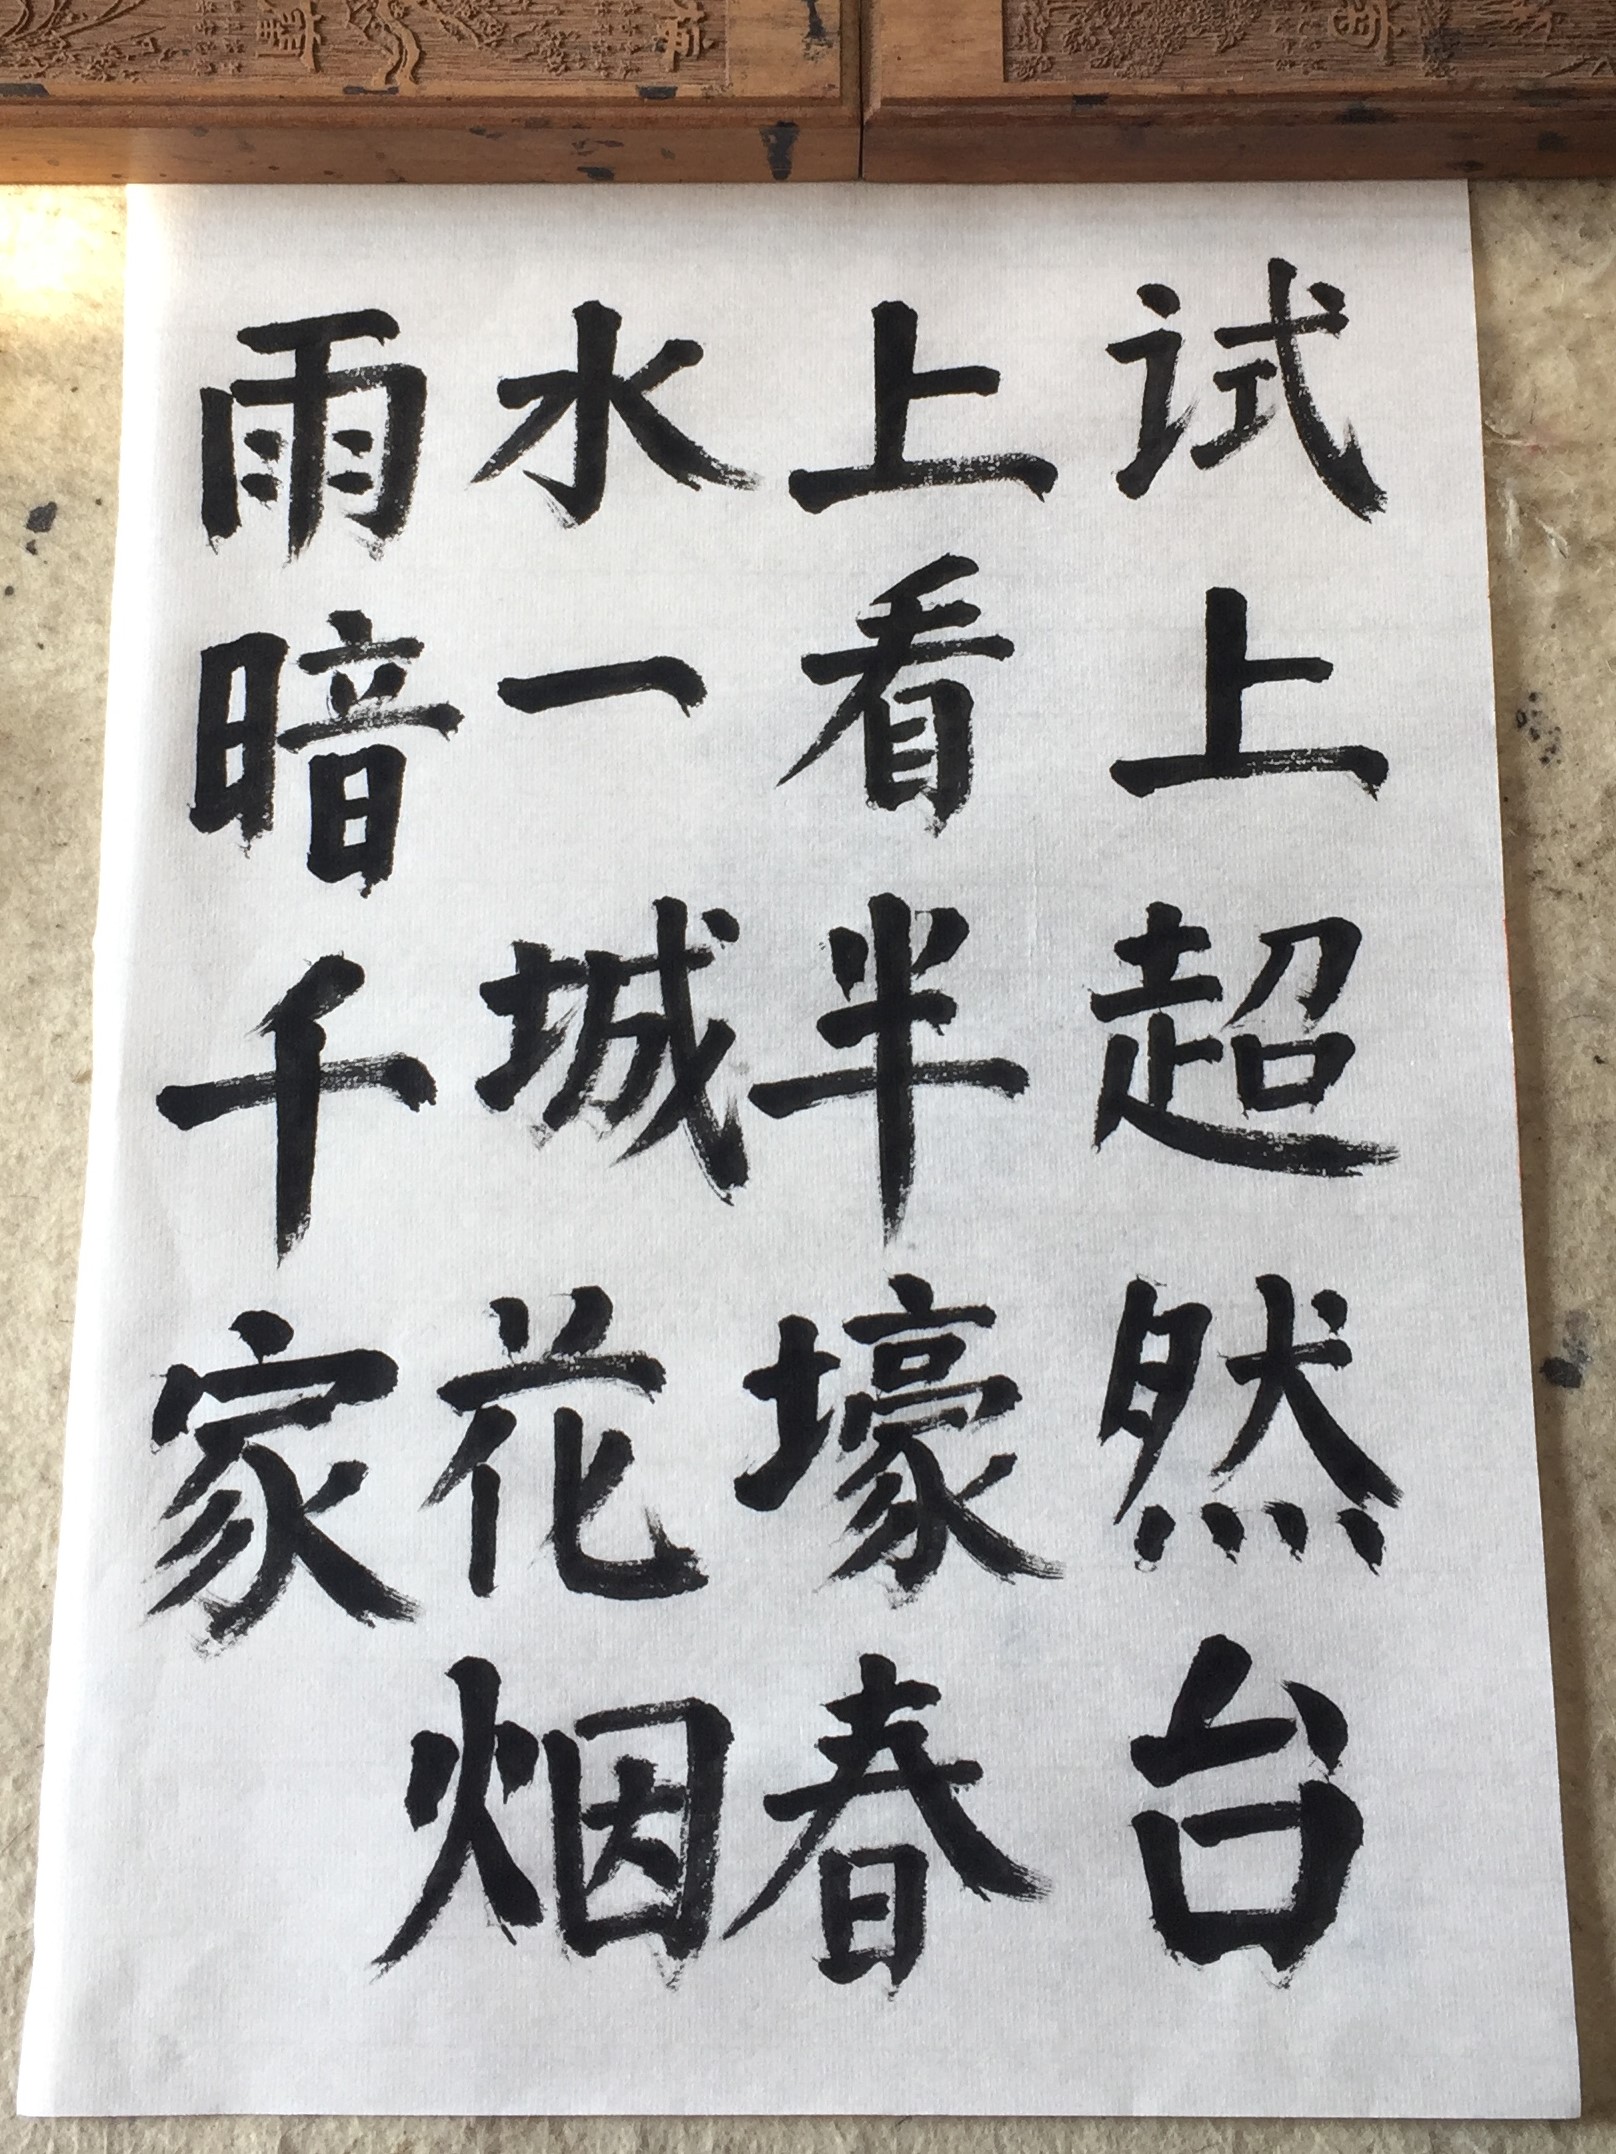 试上超然台
上看半壕春
水一城花烟
雨暗千家